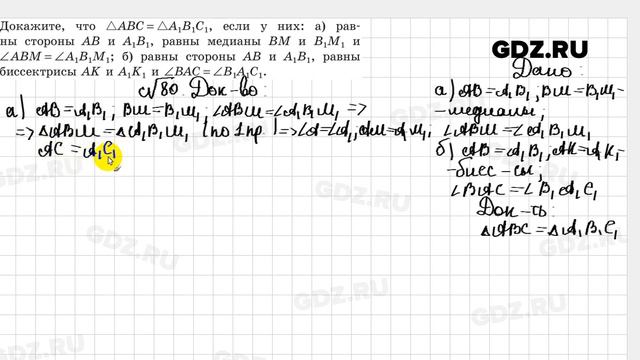 Докажите, что △ABC = △A₁B₁C₁, если у них: а) рав-
ны стороны AB и A₁B₁, равны медианы BM и B₁M₁ и
∠ABM = ∠A₁B₁M₁; б) равны стороны AB и A₁B₁, равны
биссектрисы AK и A₁K₁ и ∠BAC = ∠B₁A₁C₁.
GDZ.RU
√80 Док-во:
а) AB = A₁B₁, BM = B₁M₁, ∠ABM = ∠A₁B₁M₁ =>
=> △ABM = △A₁B₁M₁ (по 1 пр.) => ∠A = ∠A₁, AM = A₁M₁;
AC = A₁C₁
Дано:
а) AB = A₁B₁, BM = B₁M₁ -
- медианы;
∠ABM = ∠A₁B₁M₁
б) AB = A₁B₁, AK = A₁K₁ -
- бисс-сы;
∠BAC = ∠B₁A₁C₁
Док-ть:
△ABC = △A₁B₁C₁